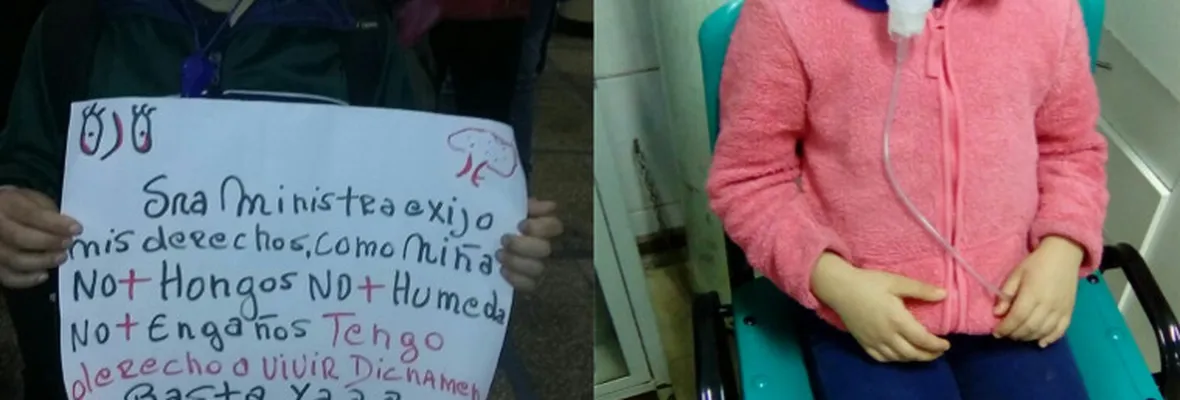 Sra Ministra exijo
mis derechos, como niña
No+ Hongos NO+ Humeda
No+ Engaños Tengo
derecho a ViViR Dignamen
Basta Yaaa